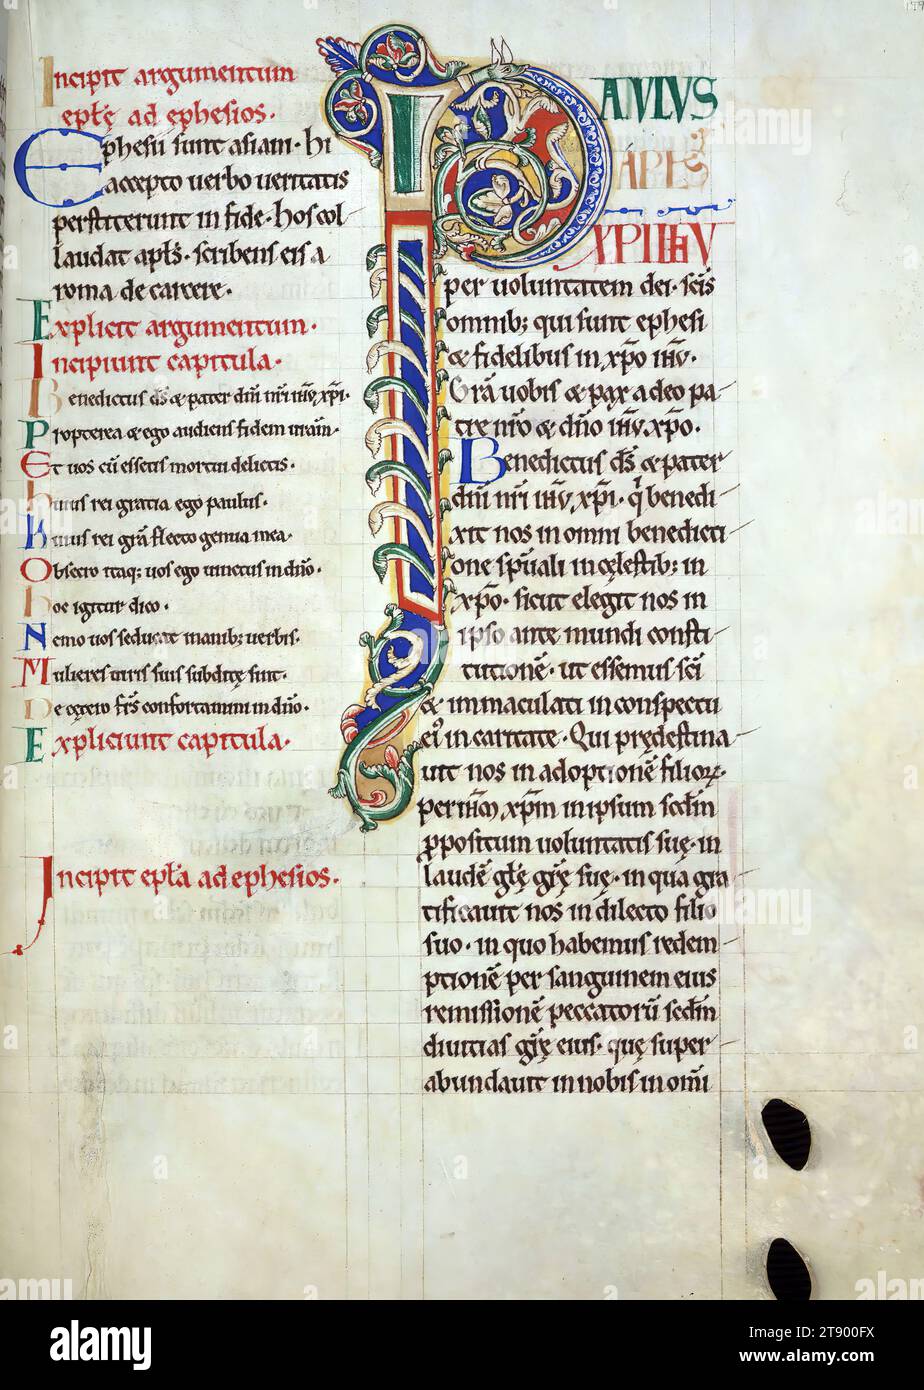 Incipit argumentum
eplę ad ephesios.
Ephesii sunt asiani. hi
accepto verbo veritatis
perstiterunt in fide. hos col
laudat apłs. scribens eis a
roma de carcere.
Explicit argumentum.
Incipiunt capitula.
Benedictus ds̄ & pater dn̄i nr̄i ihū xp̄i.
Propterea & ego audiens fidem uram̄.
Et uos cū essetis mortui delictis.
huius rei gratia ego paulus.
huius rei grā flecto genua mea.
Obsecro itaq; uos ego uinctus in dn̄o.
hoc igitur dico.
Nemo uos seducat inanib; uerbis.
Mulieres uiris suis subditę sint.
De cętero fr̄s confortamini in dn̄o.
Expliciunt capitula.
Incipit epła ad ephesios.
PAULUS
APLS
XPI IHU
per uoluntatem dei. scīs
omnib; qui sunt ephesi
& fidelibus in xp̄o ihū.
Grā uobis & pax a deo pa
tre nr̄o & dn̄o ihū xp̄o.
Benedictus ds̄ & pater
dn̄i nr̄i ihū xp̄i. q̄ benedi
xit nos in omni benedicti
one sp̄uali in cęlestib; in
xp̄o. sicut elegit nos in
ipso ante mundi consti
tutionē. ut essemus scī
& immaculati in conspectu
ei' in caritate. Qui prędestina
uit nos in adoptionē filioꝝ.
per ihm̄ xp̄m in ipsum scdm̄
ꝓpositum uoluntatis suę. in
laudē głę grę̄ suę. in qua gra
tificauit nos in dilecto filio
suo. in quo habemus redem
ptionē per sanguinem eius
remissionē peccatorū scdm̄
diuitias grę̄ eius. quę super
abundauit in nobis in om̄i
alamy
Image ID: 2T900FX
www.alamy.com